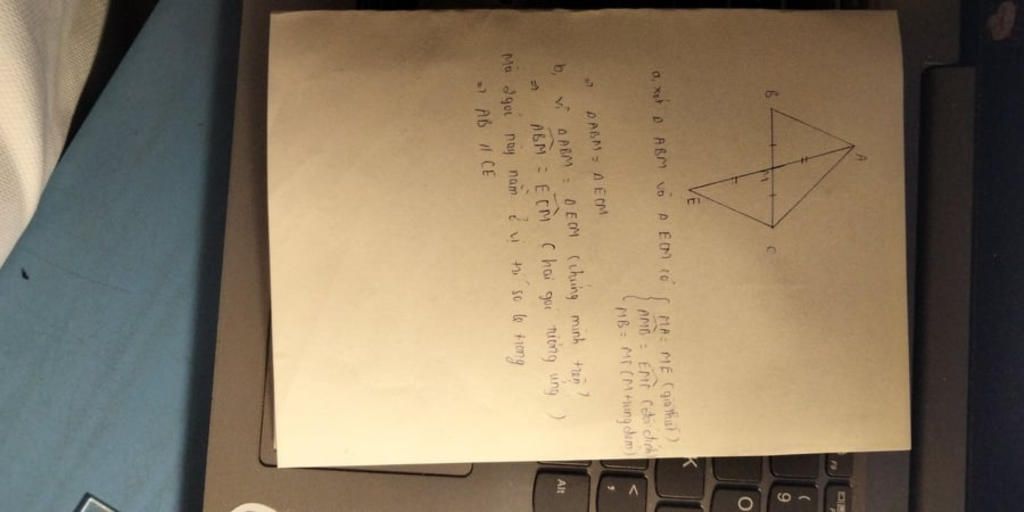 A
B
M
C
E
a, xét Δ ABM và Δ ECM có { MA = ME (giả thiết)
AMB = EMC (đối đỉnh)
MB = MC (M trung điểm)
=> ΔABM = ΔECM
b, vì ΔABM = ΔECM (chứng minh trên)
=> ABM = ECM (hai góc tương ứng)
Mà 2 góc này nằm ở vị trí so le trong
=> AB // CE
Alt
<
,
K
O
(
9